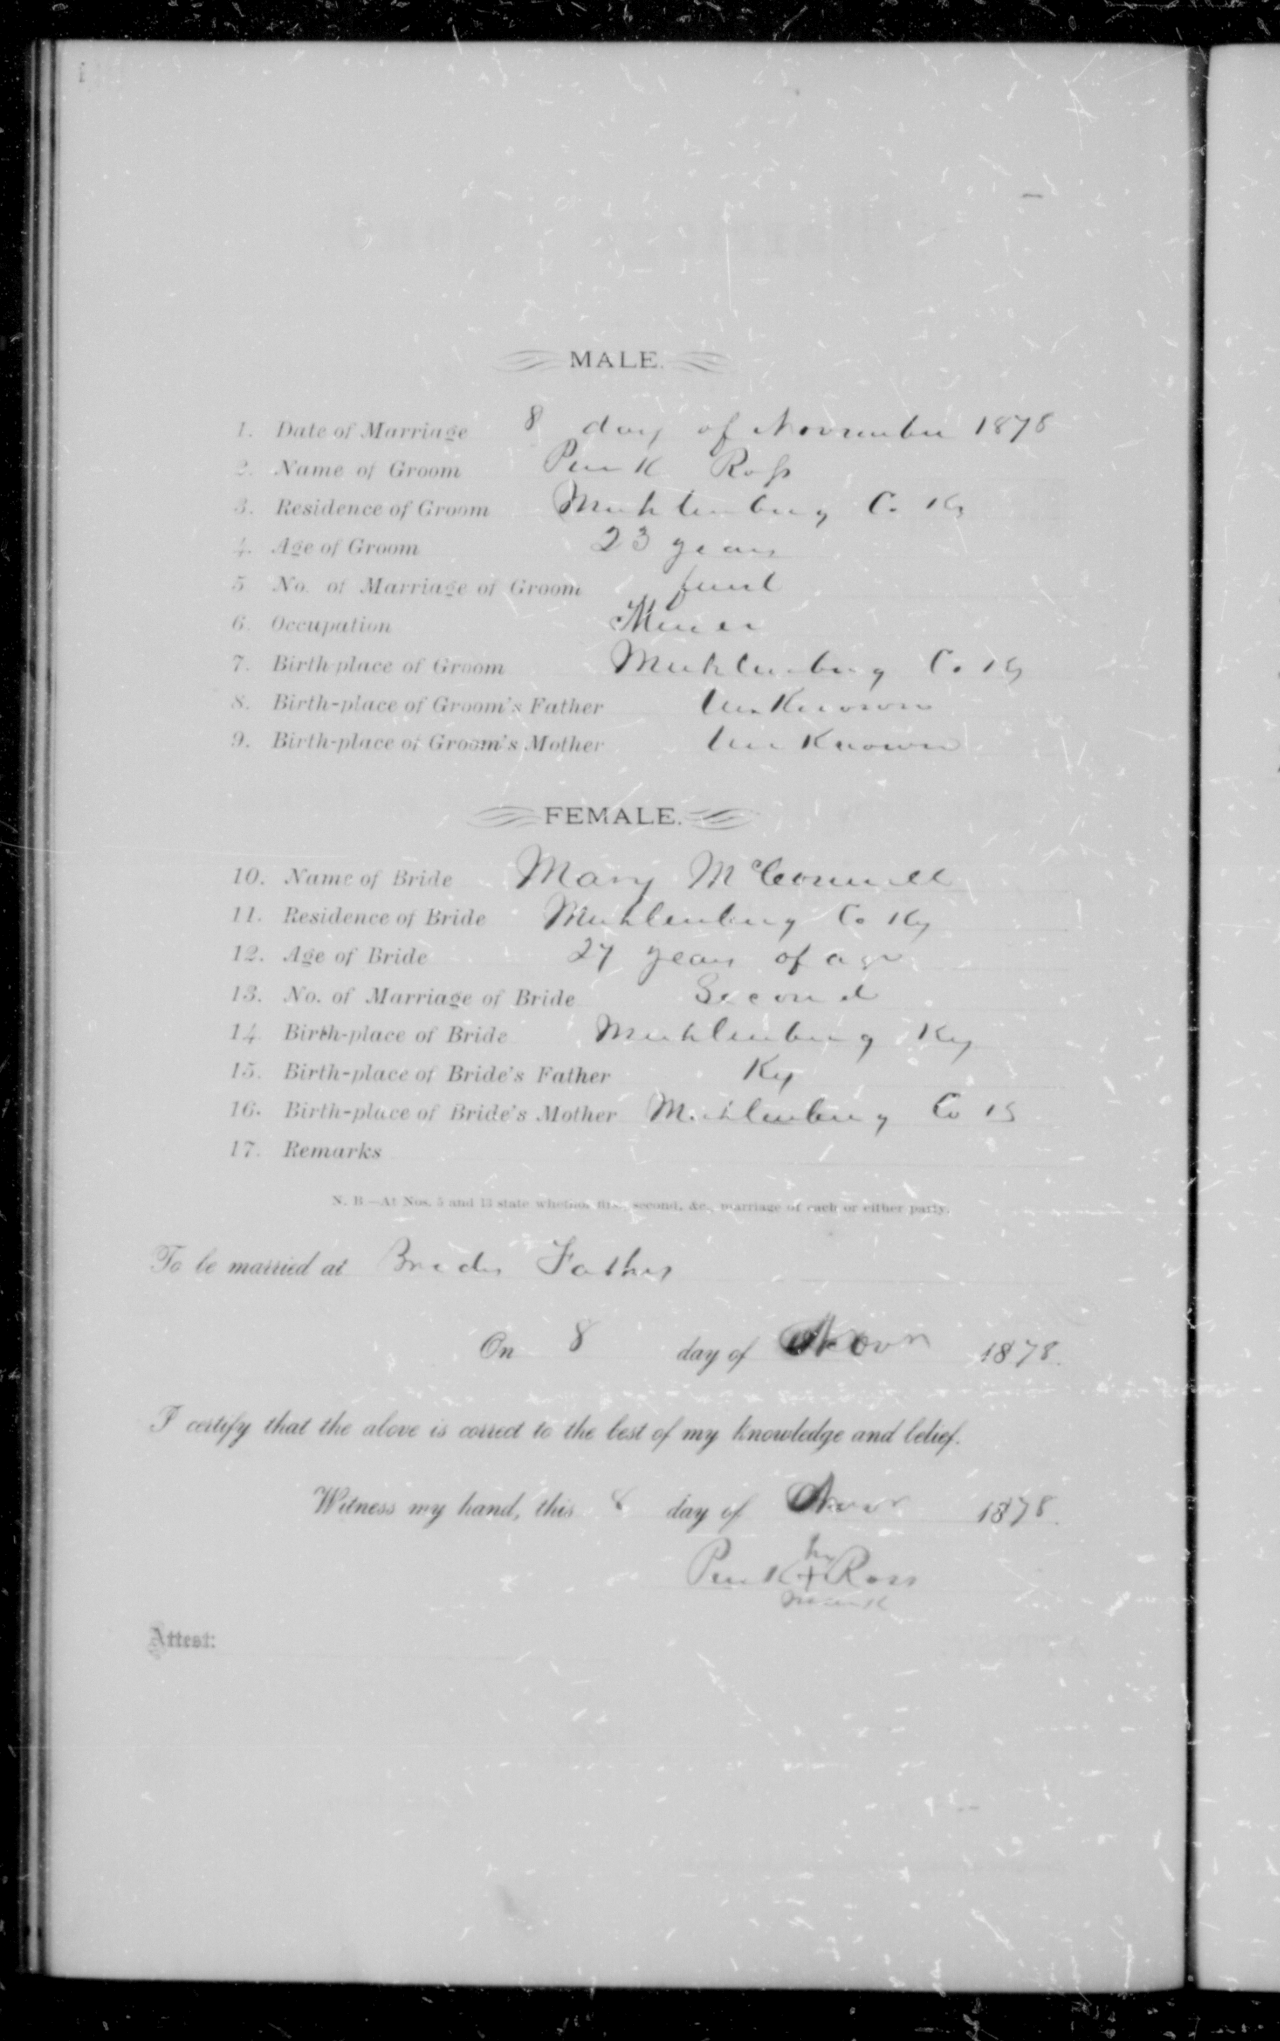 MALE.
1. Date of Marriage 8 day of November 1878
2. Name of Groom Pink Ross
3. Residence of Groom Muhlenburg Co Ky
4. Age of Groom 23 years
5 No. of Marriage of Groom first
6. Occupation Miner
7. Birth-place of Groom Muhlenburg Co Ky
8. Birth-place of Groom's Father Unknown
9. Birth-place of Groom's Mother Unknown
FEMALE.
10. Name of Bride Mary McConnell
11. Residence of Bride Muhlenburg Co Ky
12. Age of Bride 27 years of age
13. No. of Marriage of Bride Second
14. Birth-place of Bride Muhlenburg Ky
15. Birth-place of Bride's Father Ky
16. Birth-place of Bride's Mother Muhlenburg Co Ky
17. Remarks
N. B.—At Nos. 5 and 13 state whether first, second, &c., marriage of each or either party.
To be married at Brides Fathers
On 8 day of Novr 1878.
I certify that the above is correct to the best of my knowledge and belief.
Witness my hand, this 8 day of Novr 1878.
his
Pink + Ross
mark
Attest: